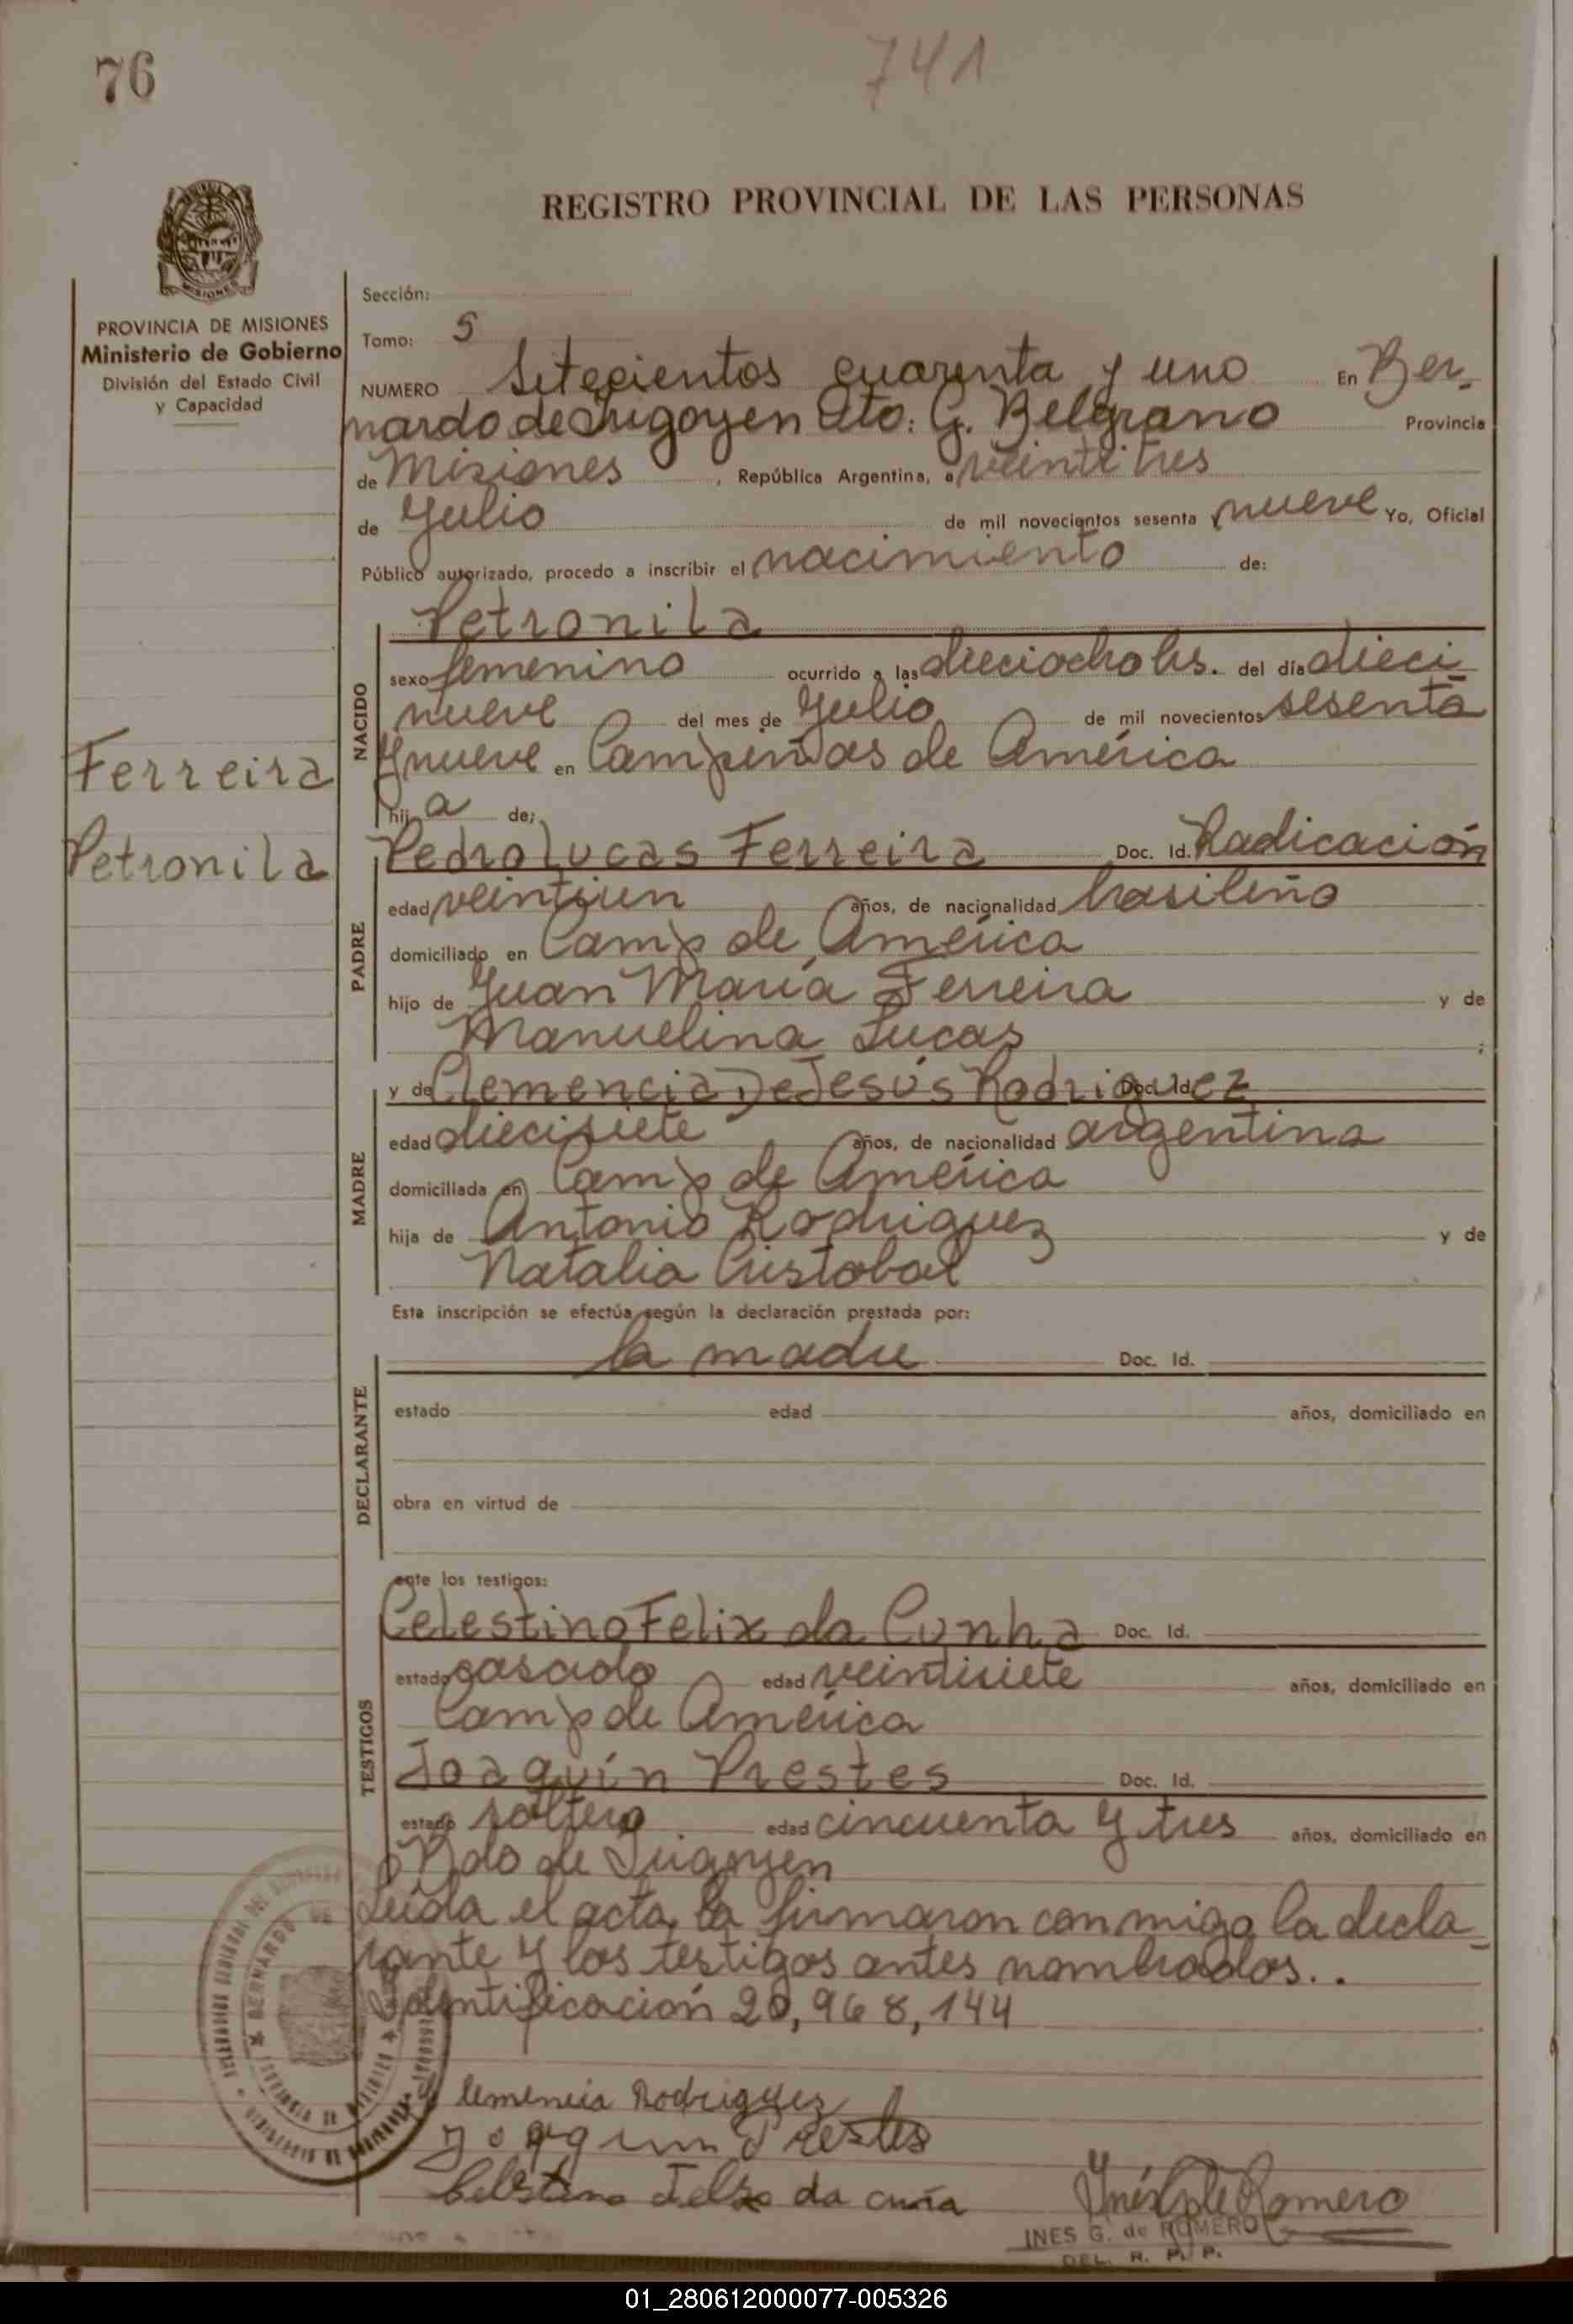 76
741
REGISTRO PROVINCIAL DE LAS PERSONAS
MISIONES
PROVINCIA DE MISIONES
Ministerio de Gobierno
División del Estado Civil
y Capacidad
Ferreira
Petronila
Sección:
Tomo: 5
NUMERO Setecientos cuarenta y uno En Ber-
nardo de Irigoyen Dto: G. Belgrano Provincia
de Misiones, República Argentina, a veinti tres
de Julio de mil novecientos sesenta y nueve Yo, Oficial
Público autorizado, procedo a inscribir el nacimiento de:
Petronila
NACIDO
sexo femenino ocurrido a las dieciocho hs. del día dieci
nueve del mes de Julio de mil novecientos sesenta
y nueve en Campiñas de América
hija de:
PADRE
Pedro Lucas Ferreira Doc. Id. Radicación
edad veintiun años, de nacionalidad brasileño
domiciliado en Camp de América
hijo de Juan María Ferreira y de
Manuelina Lucas ;
MADRE
y de Clemencia De Jesús Rodriguez Doc. Id.
edad diecisiete años, de nacionalidad argentina
domiciliada en Camp de América
hija de Antonio Rodriguez y de
Natalia Cristobal
Esta inscripción se efectúa según la declaración prestada por:
DECLARANTE
la madre Doc. Id.
estado edad años, domiciliado en
obra en virtud de
ante los testigos:
TESTIGOS
Celestino Felix da Cunha Doc. Id.
estado casado edad veintisiete años, domiciliado en
Camp de América
Joaquín Prestes Doc. Id.
estado soltero edad cincuenta y tres años, domiciliado en
Bdo de Irigoyen
Leída el acta, la firmaron conmigo la decla-
rante y los testigos antes nombrados..
Identificación 20,968,144
Clemencia Rodriguez
Joaquim Prestes
da cuña
Romero
INES G. de ROMERO
DEL. R. P. P.
01_280612000077-005326